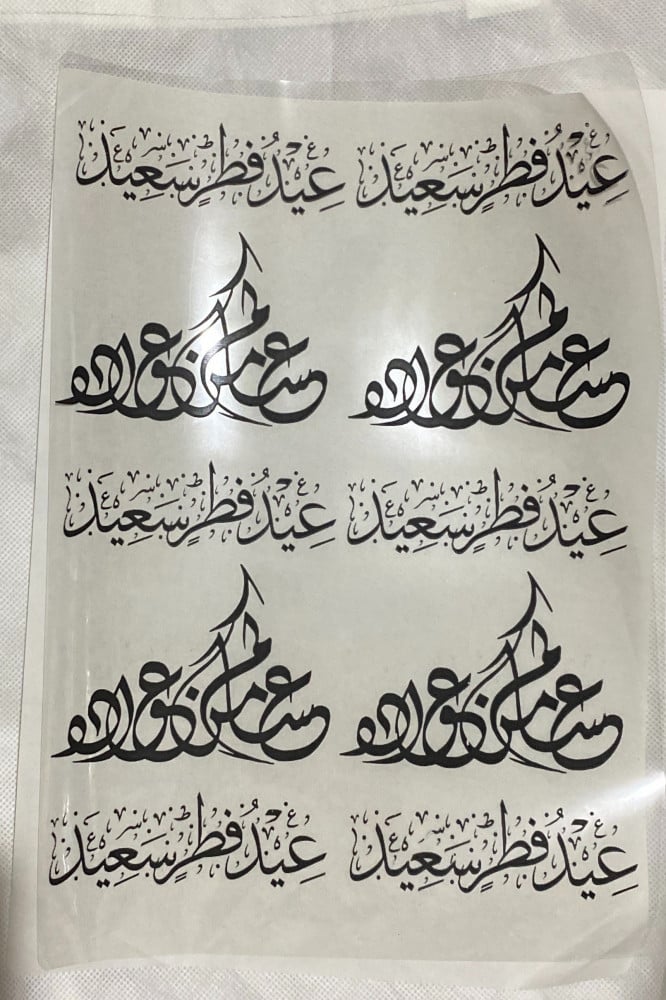 عيد فطر سعيد عيد فطر سعيد
عساكم من عواده عساكم من عواده
عيد فطر سعيد عيد فطر سعيد
عساكم من عواده عساكم من عواده
عيد فطر سعيد عيد فطر سعيد